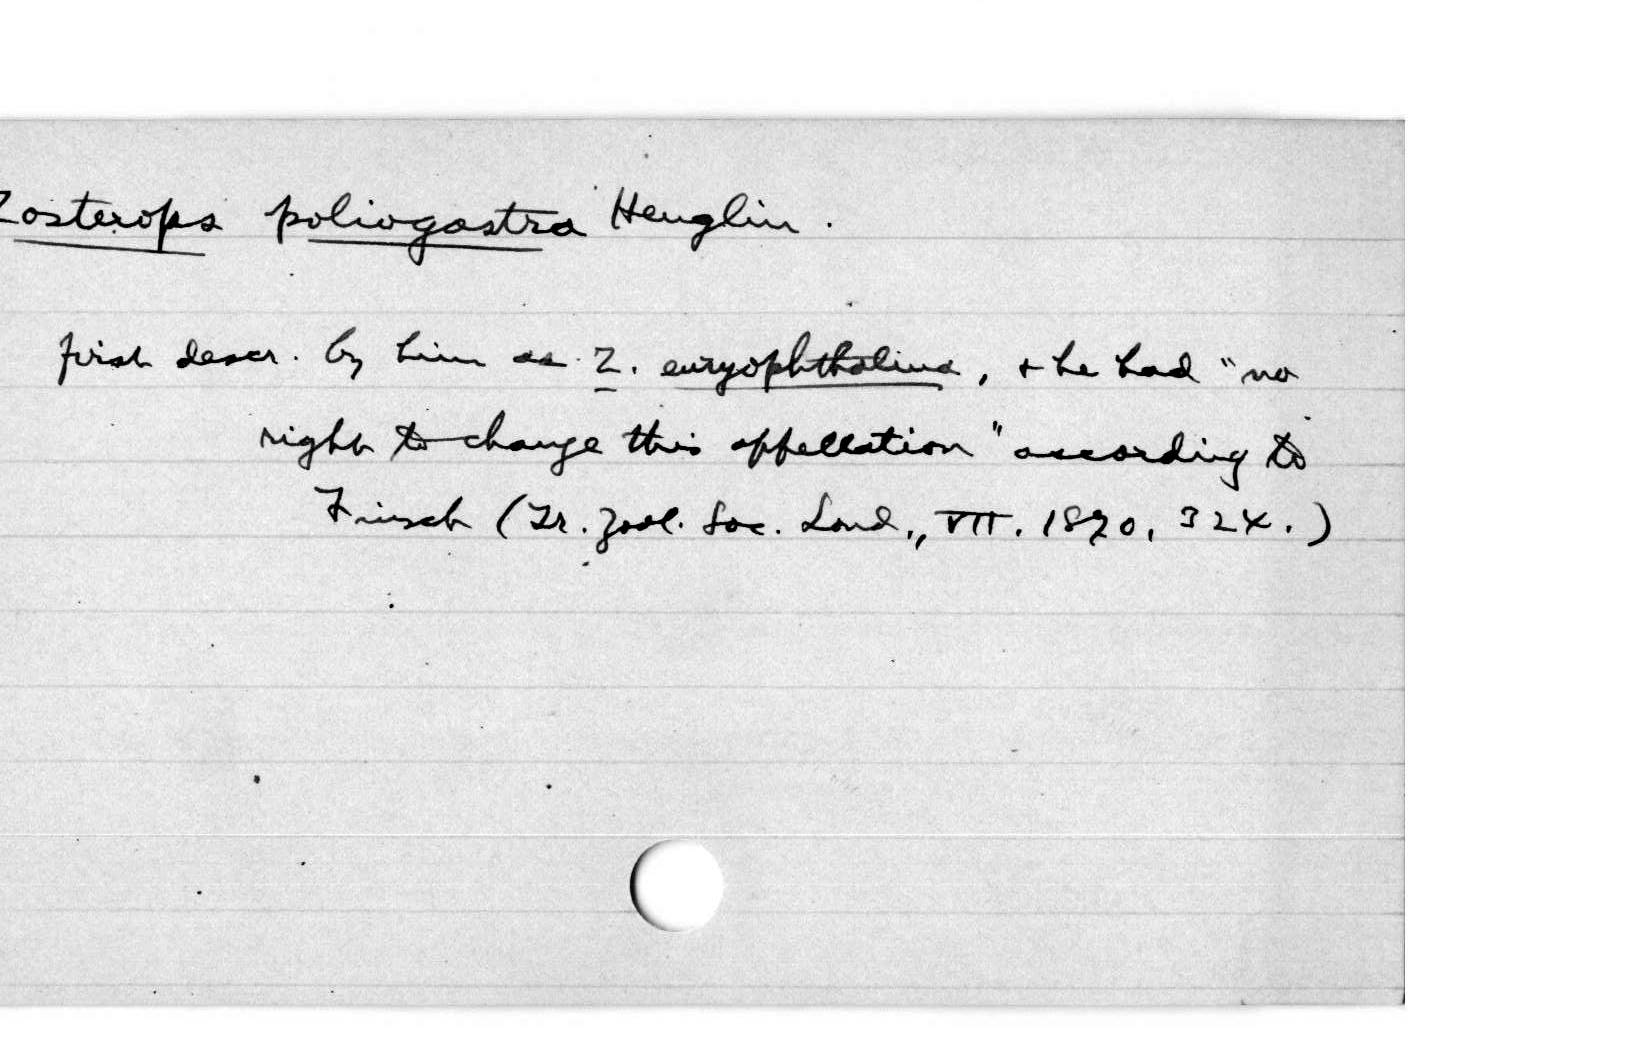 Zosterops poliogastra Heuglin.
first descr. by him as Z. euryophthalma, + he had "no
right to change this appellation" according to
Finsch (Tr. Zool. Soc. Lond., VII. 1870, 324.)